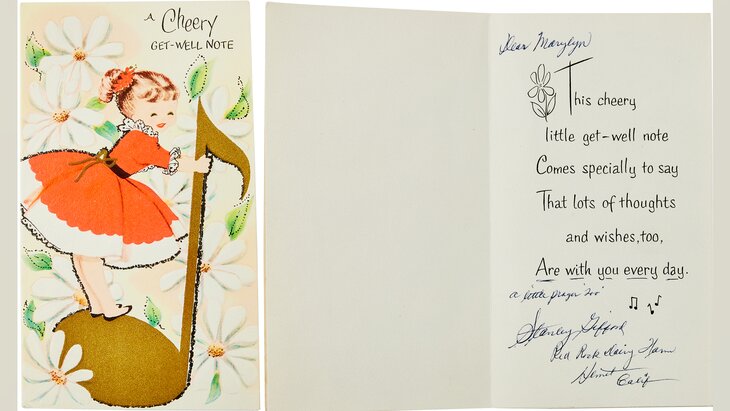 A Cheery
GET-WELL NOTE
Dear Marylyn
This cheery
little get-well note
Comes specially to say
That lots of thoughts
and wishes, too,
Are with you every day.
a little prayer "too"
Stanley Gifford
Red Rock Dairy Farm
Hemet
Calif